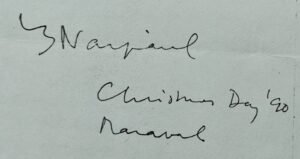 VSNaipaul
Christmas Day '90
Maraval